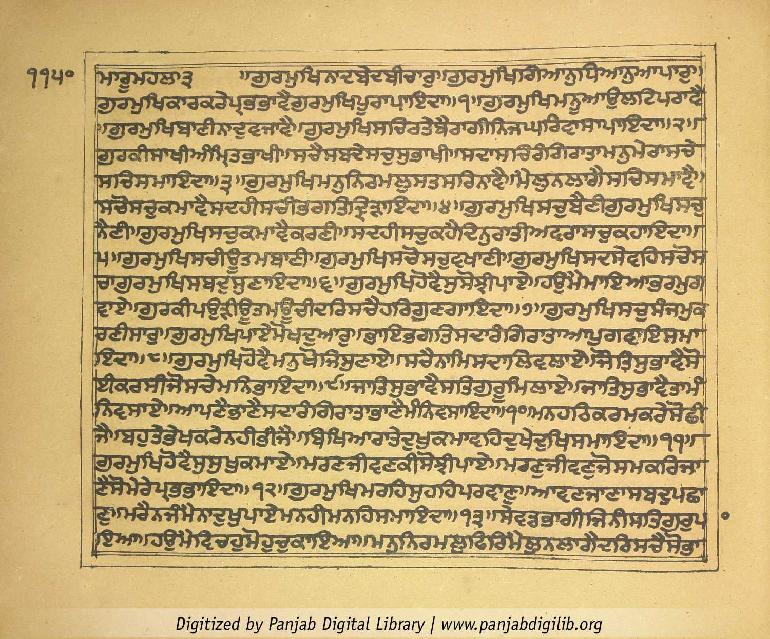 ੧੧੫੦
ਮਾਰੂਮਹਲਾ੩ ॥ਗੁਰਮੁਖਿਨਾਦਬੇਦਬੀਚਾਰੁ॥ਗੁਰਮੁਖਿਗਿਆਨੁਧਿਆਨੁਆਪਾਰੁ॥
ਗੁਰਮੁਖਿਕਾਰਕਰੇਪ੍ਰਭਭਾਵੈਗੁਰਮੁਖਿਪੂਰਾਪਾਇਦਾ॥੧॥ਗੁਰਮੁਖਿਮਨੂਆਉਲਟਿਪਰਾਵੈ
॥ਗੁਰਮੁਖਿਬਾਣੀਨਾਦੁਵਜਾਵੈ॥ਗੁਰਮੁਖਿਸਚਿਰਤੇਬੈਰਾਗੀਨਿਜਘਰਿਵਾਸਾਪਾਇਦਾ॥੨॥
ਗੁਰਕੀਸਾਖੀਅੰਮ੍ਰਿਤਭਾਖੀ॥ਸਚੈਸਬਦੇਸਚੁਸੁਭਾਖੀ॥ਸਦਾਸਚਿਰੰਗਿਰਾਤਾਮਨੁਮੇਰਾਸਚੇ
ਸਚਿਸਮਾਇਦਾ॥੩॥ਗੁਰਮੁਖਿਮਨੁਨਿਰਮਲੁਸਤਸਰਿਨਾਵੈ॥ਮੈਲੁਨਲਾਗੈਸਚਿਸਮਾਵੈ॥
ਸਚੋਸਚੁਕਮਾਵੈਸਦਹੀਸਚੀਭਗਤਿਦ੍ਰਿੜਾਇਦਾ॥੪॥ਗੁਰਮੁਖਿਸਚੁਬੈਣੀਗੁਰਮੁਖਿਸਚੁ
ਨੈਣੀ॥ਗੁਰਮੁਖਿਸਚੁਕਮਾਵੈਕਰਣੀ॥ਸਦਹੀਸਚੁਕਹੈਦਿਨੁਰਾਤੀਅਵਰਾਸਚੁਕਹਾਇਦਾ॥
੫॥ਗੁਰਮੁਖਿਸਚੀਊਤਮਬਾਣੀ॥ਗੁਰਮੁਖਿਸਚੋਸਚੁਵਖਾਣੀ॥ਗੁਰਮੁਖਿਸਦਸੇਵਹਿਸਚੋਸ
ਚਾਗੁਰਮੁਖਿਸਬਦੁਸੁਣਾਇਦਾ॥੬॥ਗੁਰਮੁਖਿਹੋਵੈਸੁਸੋਝੀਪਾਏ॥ਹਉਮੈਮਾਇਆਭਰਮੁਗ
ਵਾਏ॥ਗੁਰਕੀਪਉੜੀਊਤਮਊਚੀਦਰਿਸਚੈਹਰਿਗੁਣਗਾਇਦਾ॥੭॥ਗੁਰਮੁਖਿਸਚੁਸੰਜਮੁਕ
ਰਣੀਸਾਰੁ॥ਗੁਰਮੁਖਿਪਾਏਮੋਖਦੁਆਰੁ॥ਭਾਇਭਗਤਿਸਦਾਰੰਗਿਰਾਤਾਆਪੁਗਵਾਇਸਮਾ
ਇਦਾ॥੮॥ਗੁਰਮੁਖਿਹੋਵੈਮਨੁਖੋਜਿਸੁਣਾਏ॥ਸਚੈਨਾਮਿਸਦਾਲਿਵਲਾਏ॥ਜੋਤਿਸੁਭਾਵੈਸੋ
ਈਕਰਸੀਜੋਸਚੇਮਨਿਭਾਇਦਾ॥੯॥ਜਾਤਿਸੁਭਾਵੈਸਤਿਗੁਰੂਮਿਲਾਏ॥ਜਾਤਿਸੁਭਾਵੈਤਾਮੰ
ਨਿਵਸਾਏ॥ਆਪਣੈਭਾਣੈਸਦਾਰੰਗਿਰਾਤਾਭਾਣੈਮੰਨਿਵਸਾਇਦਾ॥੧੦॥ਮਨਹਠਿਕਰਮਕਰੇਸੋਛੀ
ਜੈ॥ਬਹੁਤੇਭੇਖਕਰੇਨਹੀਭੀਜੈ॥ਬਿਖਿਆਰਾਤੇਦੁਖੁਕਮਾਵਹਿਦੁਖੇਦੁਖਿਸਮਾਇਦਾ॥੧੧॥
ਗੁਰਮੁਖਿਹੋਵੈਸੁਸੁਖੁਕਮਾਏ॥ਮਰਣਜੀਵਣਕੀਸੋਝੀਪਾਏ॥ਮਰਣੁਜੀਵਣੁਜੋਸਮਕਰਿਜਾ
ਣੈਸੋਮੇਰੇਪ੍ਰਭਭਾਇਦਾ॥੧੨॥ਗੁਰਮੁਖਿਮਰਹਿਸੁਹਹਿਪਰਵਾਣੁ॥ਆਵਣਜਾਣਾਸਬਦੁਪਛਾ
ਣੁ॥ਮਰੈਨਜੰਮੈਨਾਦੁਖੁਪਾਏਮਨਹੀਮਨਹਿਸਮਾਇਦਾ॥੧੩॥ਸੇਵਡਭਾਗੀਜਿਨੀਸਤਿਗੁਰੁਪ
ਇਆ॥ਹਉਮੈਵਿਚਹੁਮੋਹੁਚੁਕਾਇਆ॥ਮਨੁਨਿਰਮਲੁਫਿਰਿਮੈਲੁਨਲਾਗੈਦਰਿਸਚੈਸੋਭਾ
Digitized by Panjab Digital Library | www.panjabdigilib.org